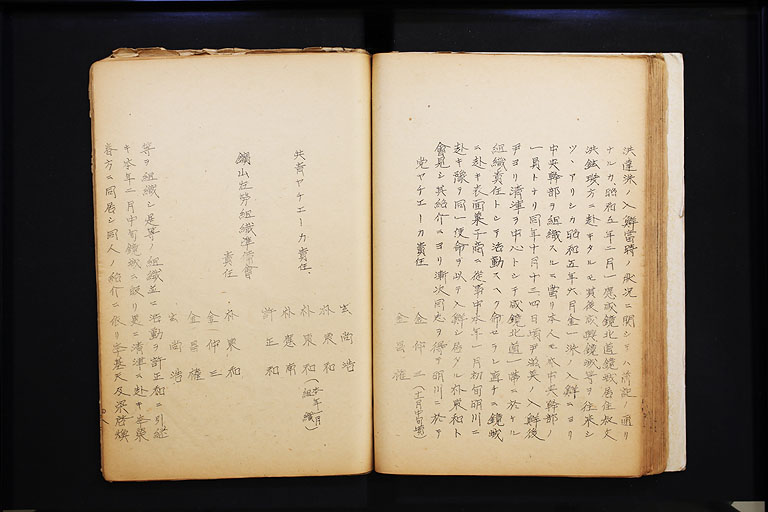 洪達洙ノ入鮮當時ノ狀況ニ関シテハ前記ノ通リ
ナルカ昭和五年二月一應咸鏡北道鏡城居住叔父
洪鉉璞方ニ赴キタルモ其後咸興鏡城等ヲ往来シ
ツヽアリシカ昭和五年六月金一洙ノ入鮮ニヨリ
中央幹部ヲ組織スルニ當リ本人モ亦中央幹部ノ
一員トナリ同年十月十三四日頃尹滋英ノ入鮮後
尹ヨリ清津ヲ中心トシテ咸鏡北道一帶ニ於ケル
組織責任トシテ活動スヘク命セラレ直チニ鏡城
ニ赴キ表面菓子商ニ從事中本年一月初旬明川ニ
赴キ豫テ同一使命ヲ以テ入鮮シ居タル朴東和ト
會見シ其紹介ニヨリ漸次同志ヲ得テ明川ニ於テ
党ヤチエーカ責任
金仲三(十一月中旬頃)
金昌權
共青ヤチエーカ責任
玄尚浩
朴東和
朴東和(本年一月組織)
朴應南
許正和
鑛山左勞組織準備會
責任
朴東和
金仲三
金昌權
玄尚浩
等ヲ組織シ是等ノ組織並ニ活動ヲ許正和ニ引継
キ本年二月中旬鏡城ニ皈リ更ニ清津ニ赴キ李榮
春方ニ同居シ同人ノ紹介ニ依リ李基天及梁啓煥